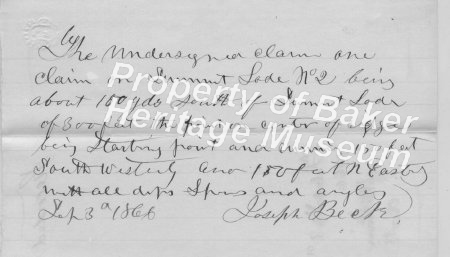 The Undersigned claim one
claim on Summit Lode No 2 being
about 100 yds South of Summit Lode
of 300 feet
being Starting point and
South Westerly and 150 feet N Easterly
with all dips Spurs and angles
Sep 3d 1866 Joseph Beck
Property of Baker
Heritage Museum